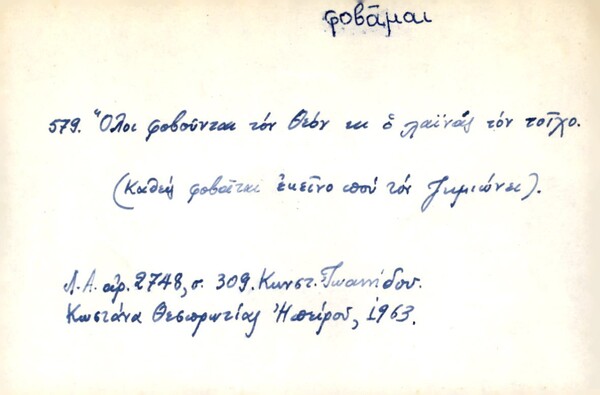 φοβᾶμαι
579. Ὅλοι φοβοῦνται τόν Θεόν κι ὁ λαϊνᾶς τόν τοῖχο.
(Καθείς φοβᾶται ἐκεῖνο πού τόν ζημιώνει).
Λ.Α. ἀρ. 2748, σ. 309. Κωνστ. Ἰωαννίδου.
Κωστάνα Θεσπρωτίας Ἠπείρου, 1963.